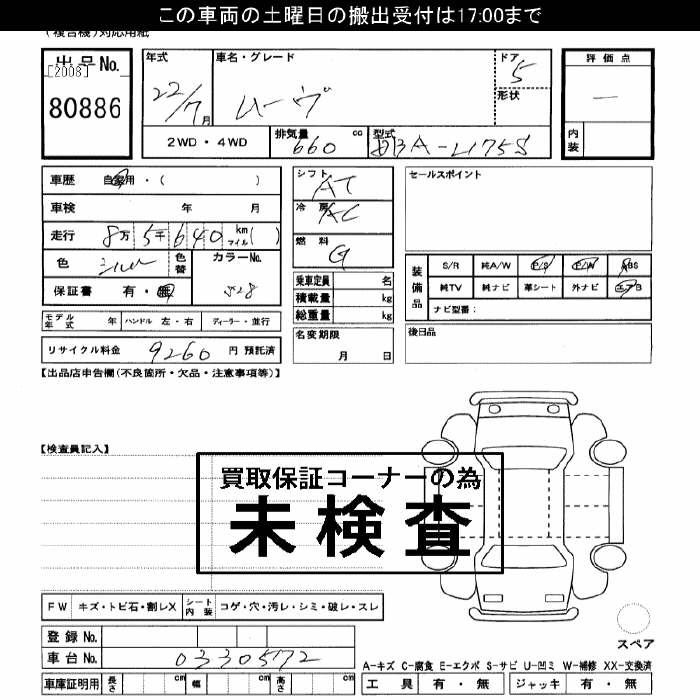 この車両の土曜日の搬出受付は17:00まで
(複合機)対応用紙
出品No. [2008] 80886
年式 22/7月
車名・グレード ムーヴ
ドア 5
形状
評価点 —
内装
2WD・4WD
排気量 660 cc
型式 DBA-L175S
車歴 自家用・( )
車検 年 月
走行 8万5千640 km マイル( )
色 シルバー 色替
カラーNo. S28
保証書 有・無
シフト AT
冷房 AC
燃料 G
乗車定員 名
積載量 kg
総重量 kg
セールスポイント
装備品
S/R 純A/W P/S P/W ABS
純TV 純ナビ 革シート 外ナビ エアB
ナビ型番:
モデル年式 年 ハンドル 左・右 ディーラー・並行
名変期限 月 日
後日品
リサイクル料金 9260 円 預託済
【出品店申告欄(不良箇所・欠品・注意事項等)】
【検査員記入】
買取保証コーナーの為
未検査
FW キズ・トビ石・割レX シート内装 コゲ・穴・汚レ・シミ・破レ・スレ
登録No.
車台No. 0330572
スペア
A-キズ C-腐食 E-エクボ S-サビ U-凹ミ W-補修 XX-交換済
車庫証明用 長さ cm 幅 cm 高さ cm
工具 有・無 ジャッキ 有・無